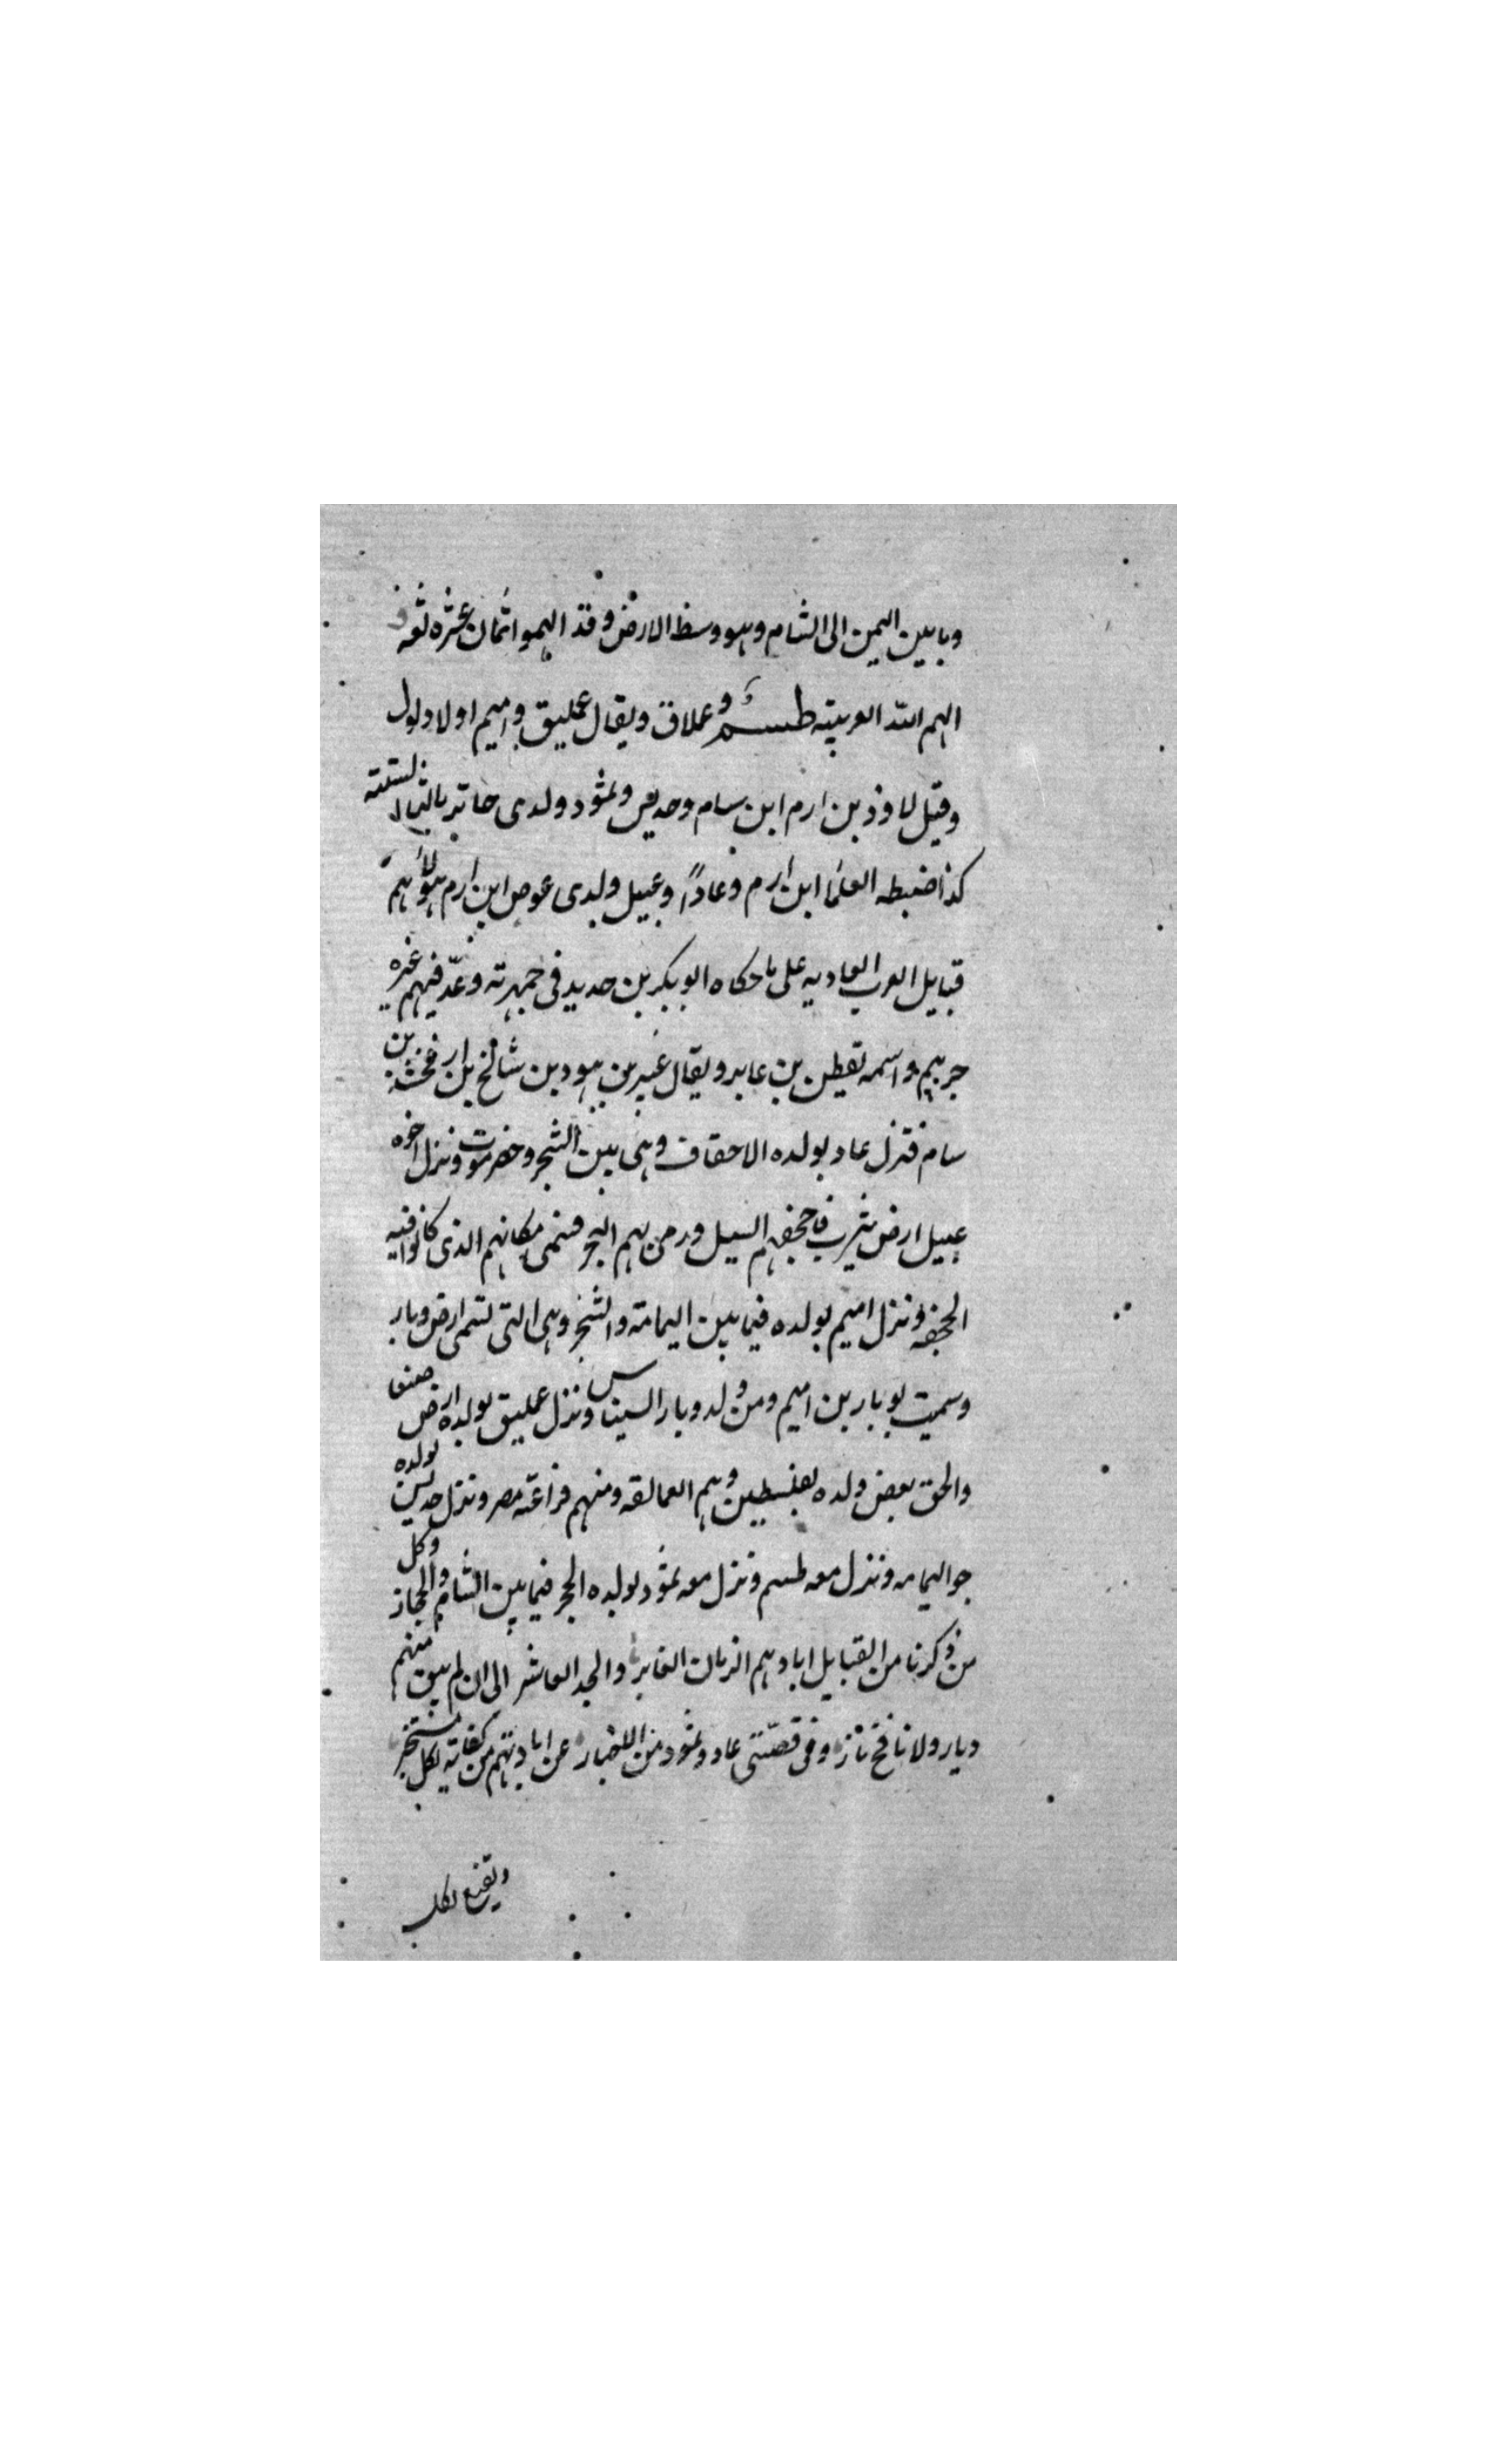 وما بين اليمن الى الشام وهو وسط الارض وقد الهموا ثمان عشره لغه و
الهم الله العربيه طسم وعملاق ويقال عمليق واميم اولاد لود
وقيل لاوذ بن ارم ابن سام وجديس وثمود ولدى جاثر بالثا المثلثه
كذا ضبطه العلما ابن ارم وعاداً وعبيل ولدى عوص ابن ارم هؤلاء هم
قبايل العرب العاديه على ما حكاه ابو بكر بن حديد فى جمهرته وعدّ فيهم غيره
جرهم واسمه يقطن بن عابر ويقال عيبر بن هود بن شالخ بن ارفخشد بن
سام فنزل عاد بولده الاحقاف وهى بين الشجر وحضرموت ونزل اخوه
عبيل ارض يثرب فاجحفهم السيل ورمى بهم البحر فسمى مكانهم الذى كانوا فيه
الجحفه ونزل اميم بولده فيما بين اليمامة والشجر وهى التى تسمى ارض وبار
وسميت بوبار بن اميم ومن ولد وبار النسناس ونزل عمليق بولده ارض صنعا
والحق بعض ولده بفلسطين وهم العمالقه ومنهم فراعنة مصر ونزل جديس بولده
جو اليمامه ونزل معه طسم ونزل معه ثمود بولده الحجر فيما بين الشام والحجاز وكل
من ذكرنا من القبايل ابادهم الزمان الغابر والجد العاشر الى ان لم يبق منهم
ديار ولا نافخ نار وفى قصّتى عاد وثمود من الاخبار عن ابادتهم من كفاية لكل مستخبر
ويقنع لكل